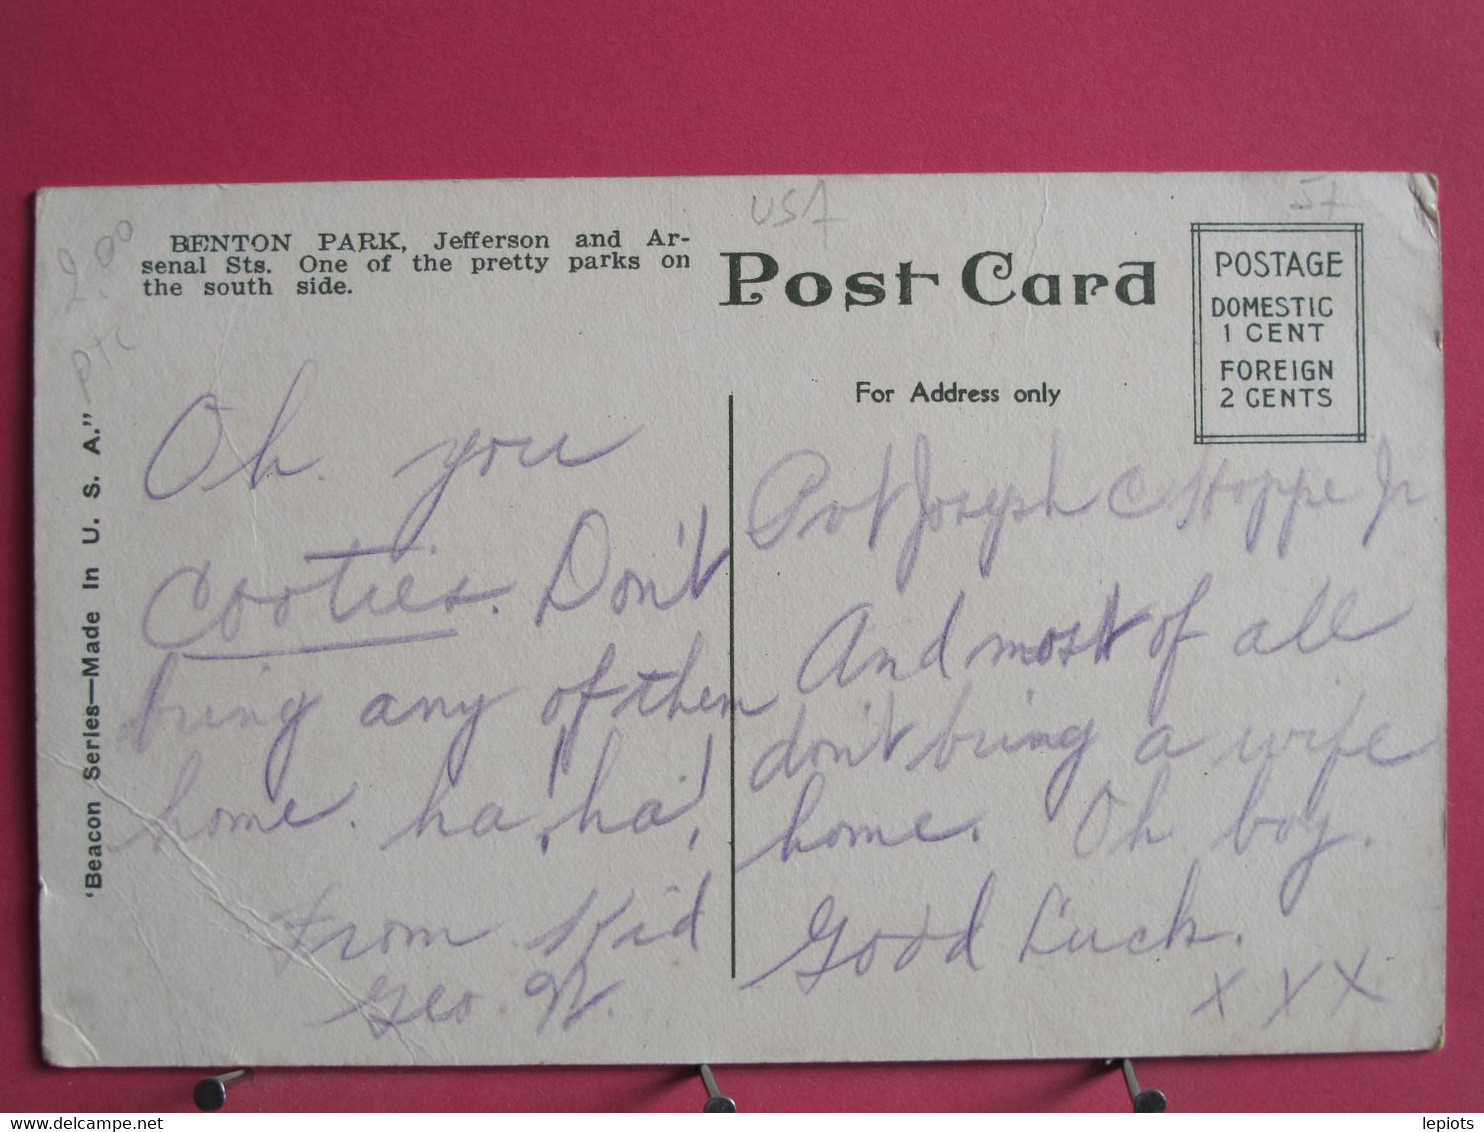 USA
5+
2.00
BENTON PARK, Jefferson and Ar-
senal Sts. One of the pretty parks on
the south side.
Post Card
POSTAGE
DOMESTIC
1 CENT
FOREIGN
2 CENTS
For Address only
'Beacon Series—Made In U. S. A."
Oh you
Cooties. Don't
bring any of them
home. ha! ha!
From Kid
Geo. W.
Pvt Joseph C Hoppe Jr
And most of all
don't bring a wife
home. Oh boy.
Good Luck.
x x x
delcampe.net
lepiots